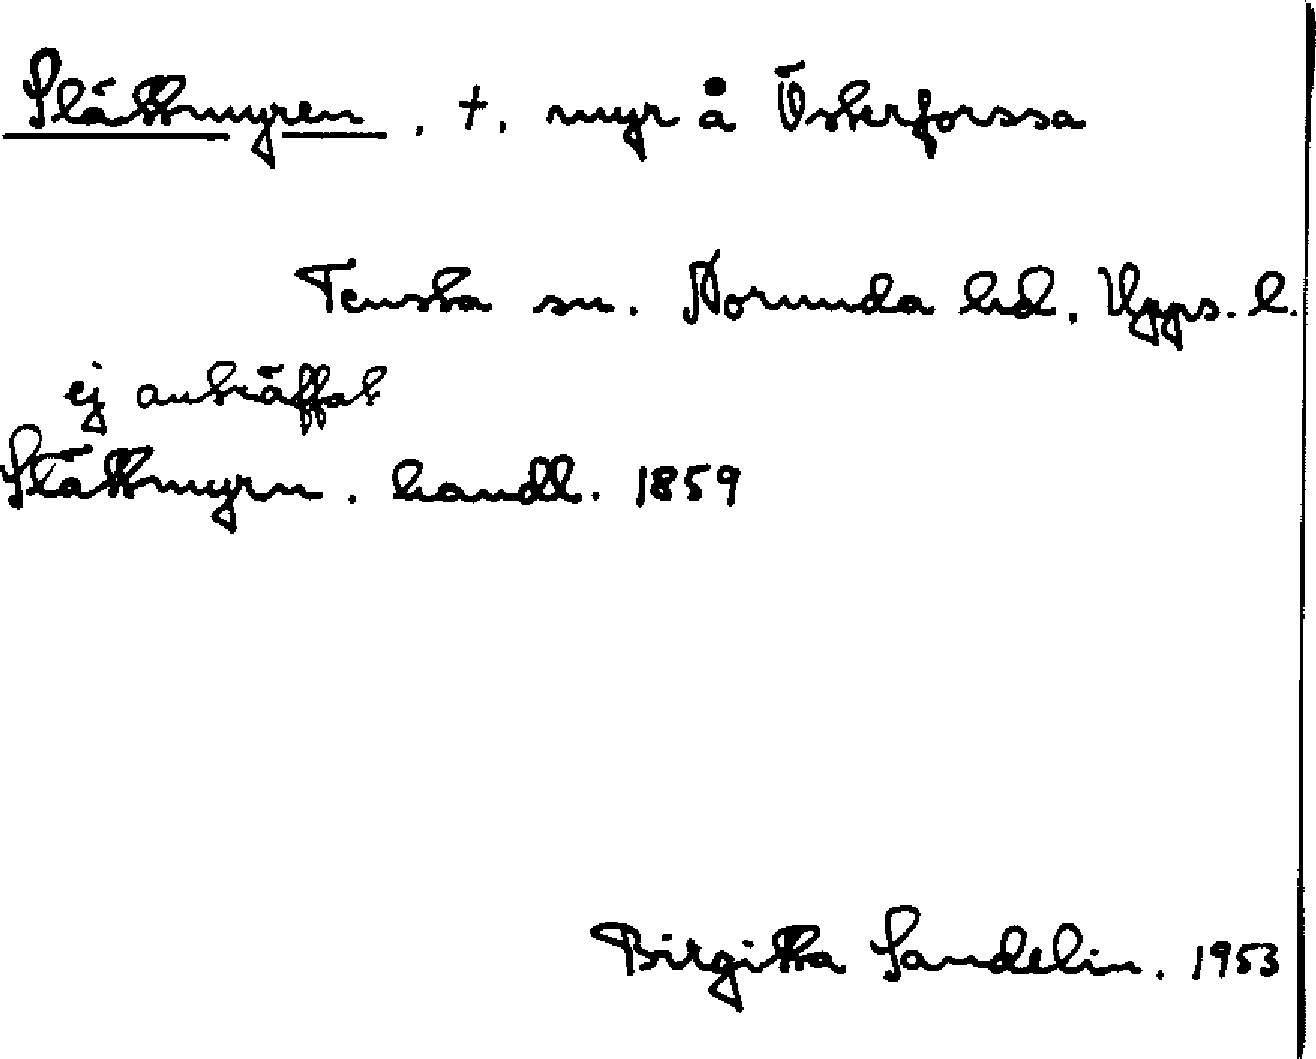 Slättmyren . †. myr å Österforssa
Tensta sn. Norunda hd. Upps. l.
ej anträffat
Slättmyrn . handl. 1859
Birgitta Sandelin. 1953